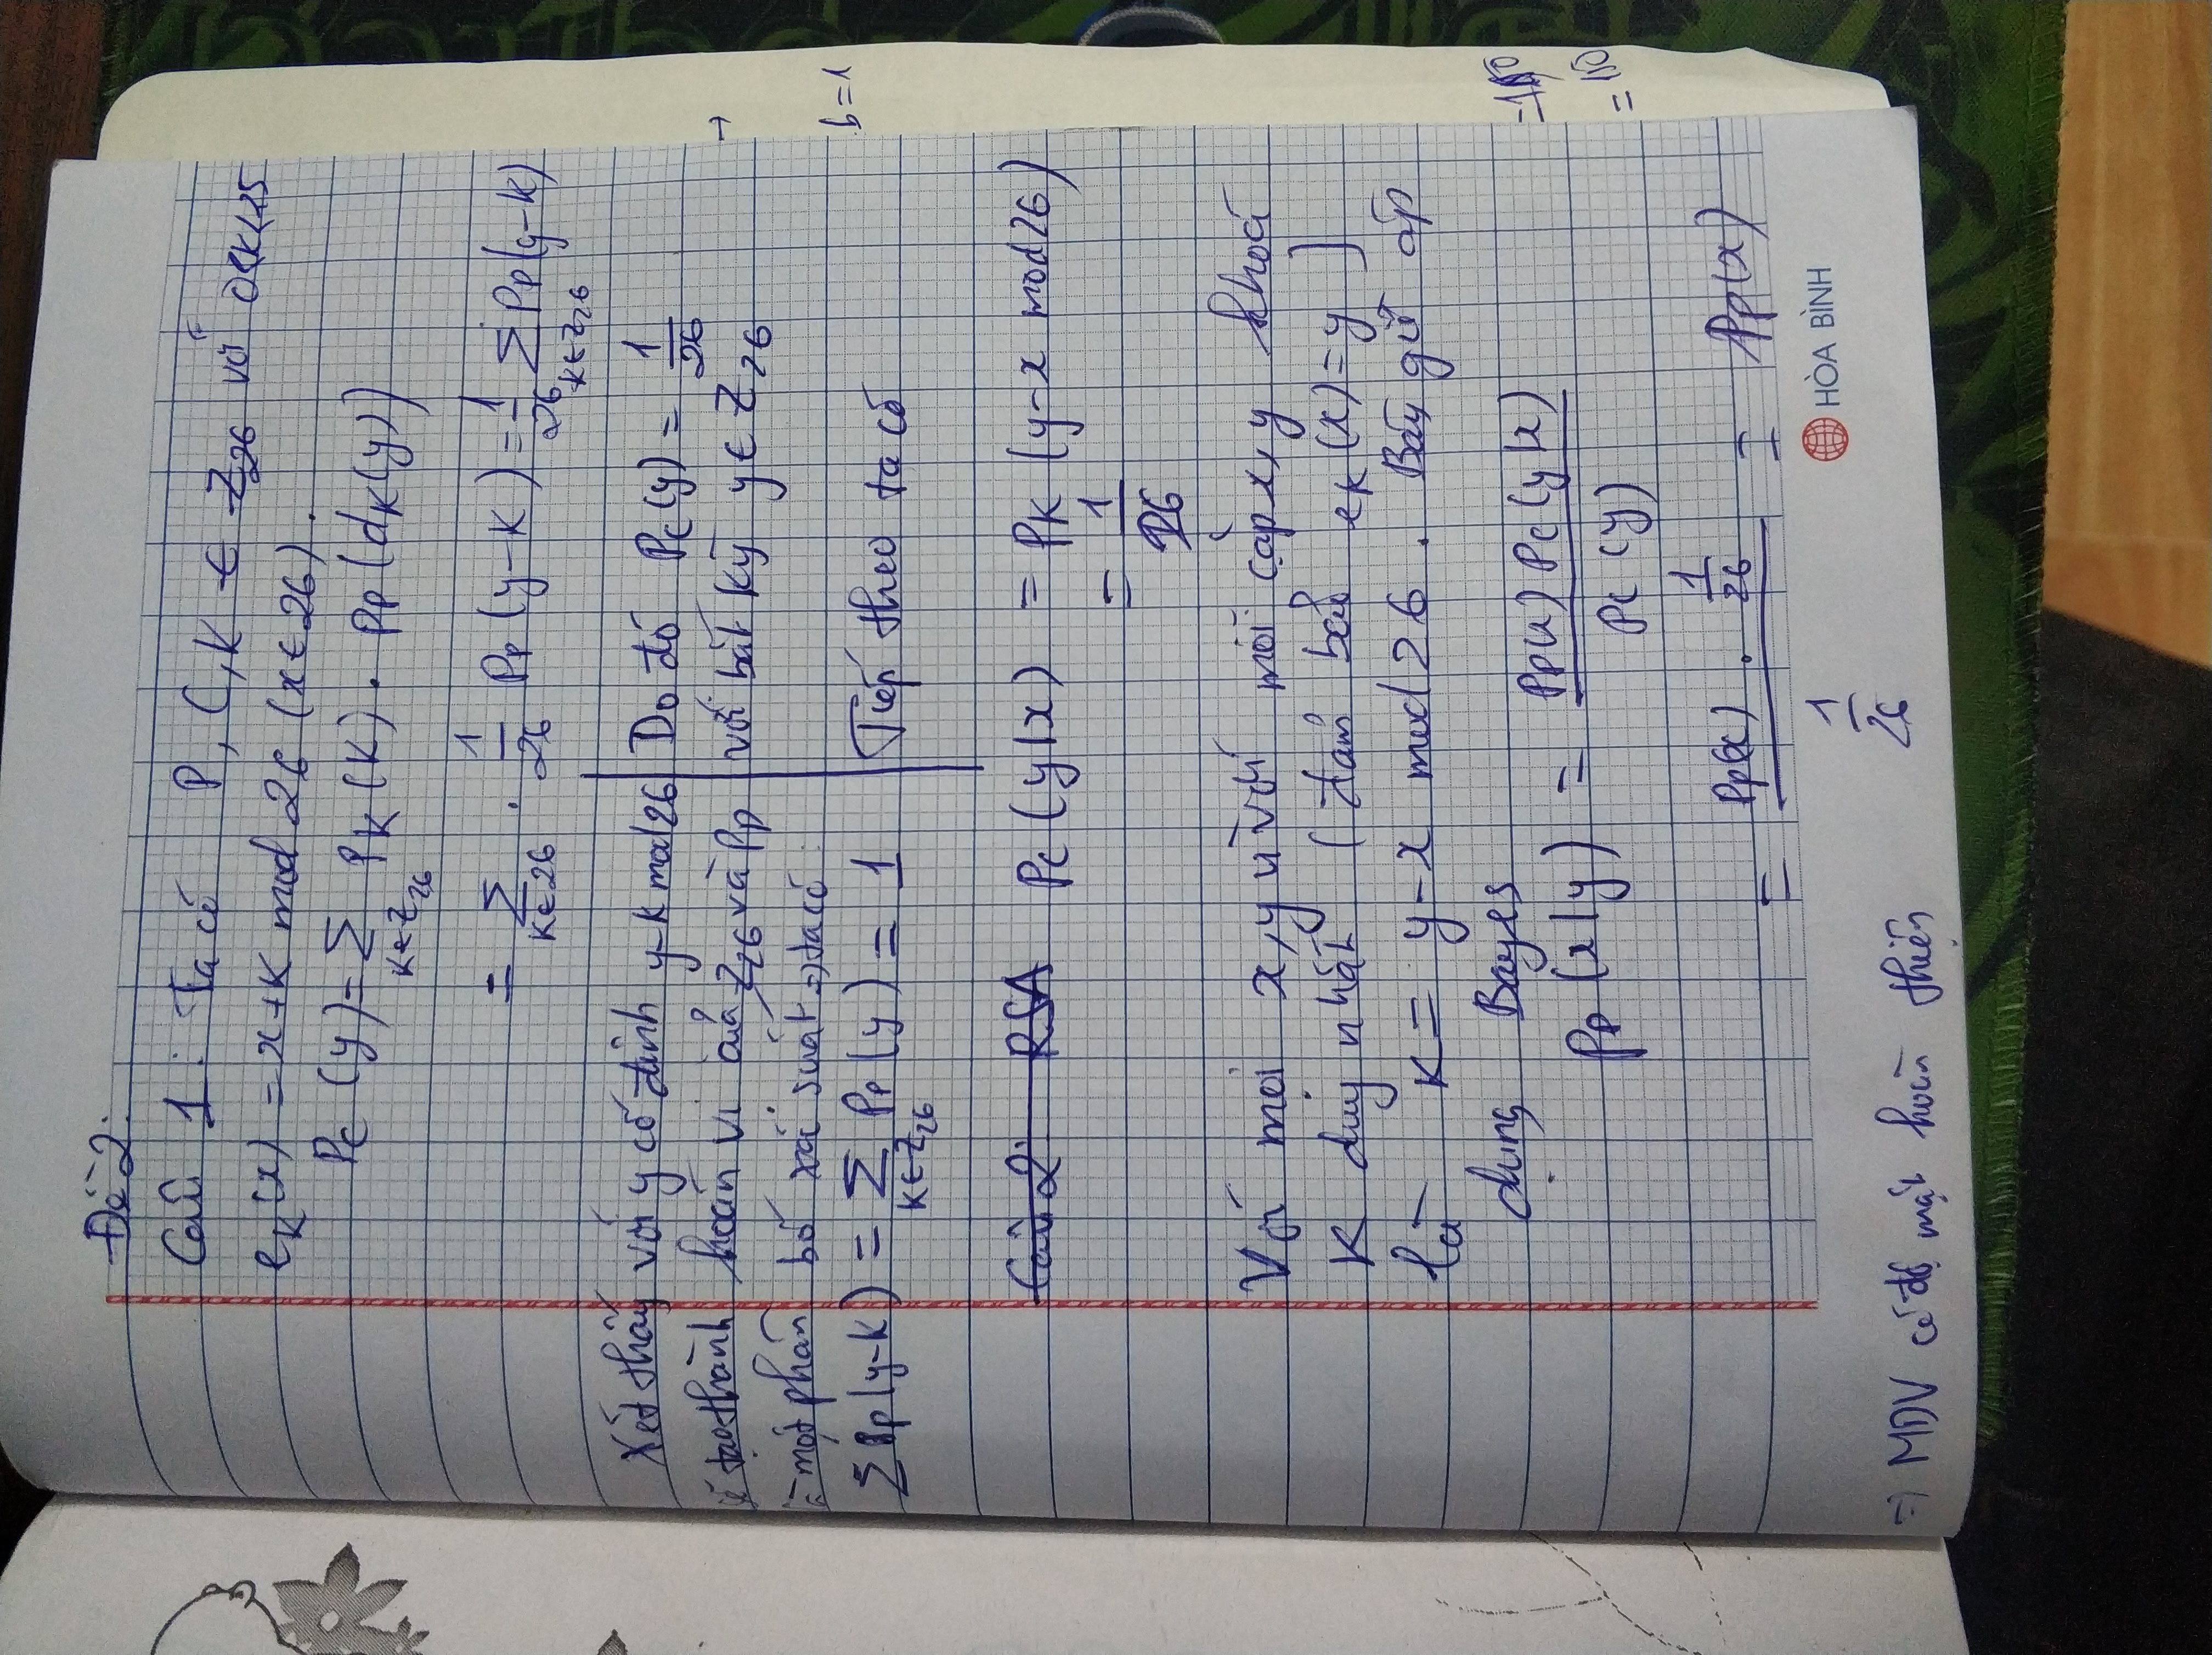 Đề 2:
Câu 1: Ta có P, C, K ∈ Z26 với 0≤K≤25
eK(x) = x+K mod 26 (x∈26).
PC (y) = Σ K∈Z26 PK(K) . Pp(dK(y))
= Σ K∈26 . 1/26 Pp(y-K) = 1/26 Σ K∈Z26 Pp(y-K)
Xét thấy với y cố định y-K mod 26
sẽ tạo thành hoán vị của Z26 và Pp
là một phân bố xác suất => ta có:
Σ Pp(y-K) = Σ K∈Z26 Pp(y) = 1
Do đó PC(y) = 1/26
với bất kỳ y∈Z26
Tiếp theo ta có
Câu 2: RSA
PC (y|x) = PK (y-x mod 26)
= 1/26
Với mọi x,y vì với mỗi cặp x,y khoá
K duy nhất (đảm bảo eK(x)=y)
là K = y-x mod 26. Bây giờ áp
dụng Bayes
Pp (x|y) = Pp(x) PC(y|x) / PC (y)
= Pp(x) . 1/26 / 1/26 = Pp(x)
=> MDV có độ mật hoàn thiện
HÒA BÌNH
→
b=1
= 150